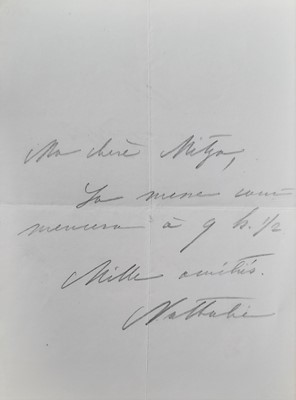 Ma chère Mitza,
La messe com
mencera à 9 h. 1/2
Mille amitiés.
Nathalie